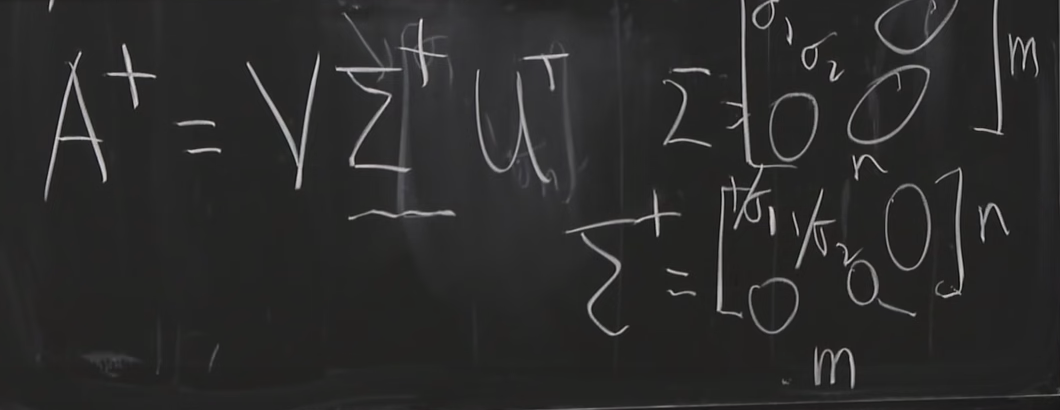 A⁺ = V Σ⁺ Uᵀ
Σ = [σ₁ σ₂ 0 0 0] m
n
Σ⁺ = [1/σ₁ 1/σ₂ 0 0 0] n
m